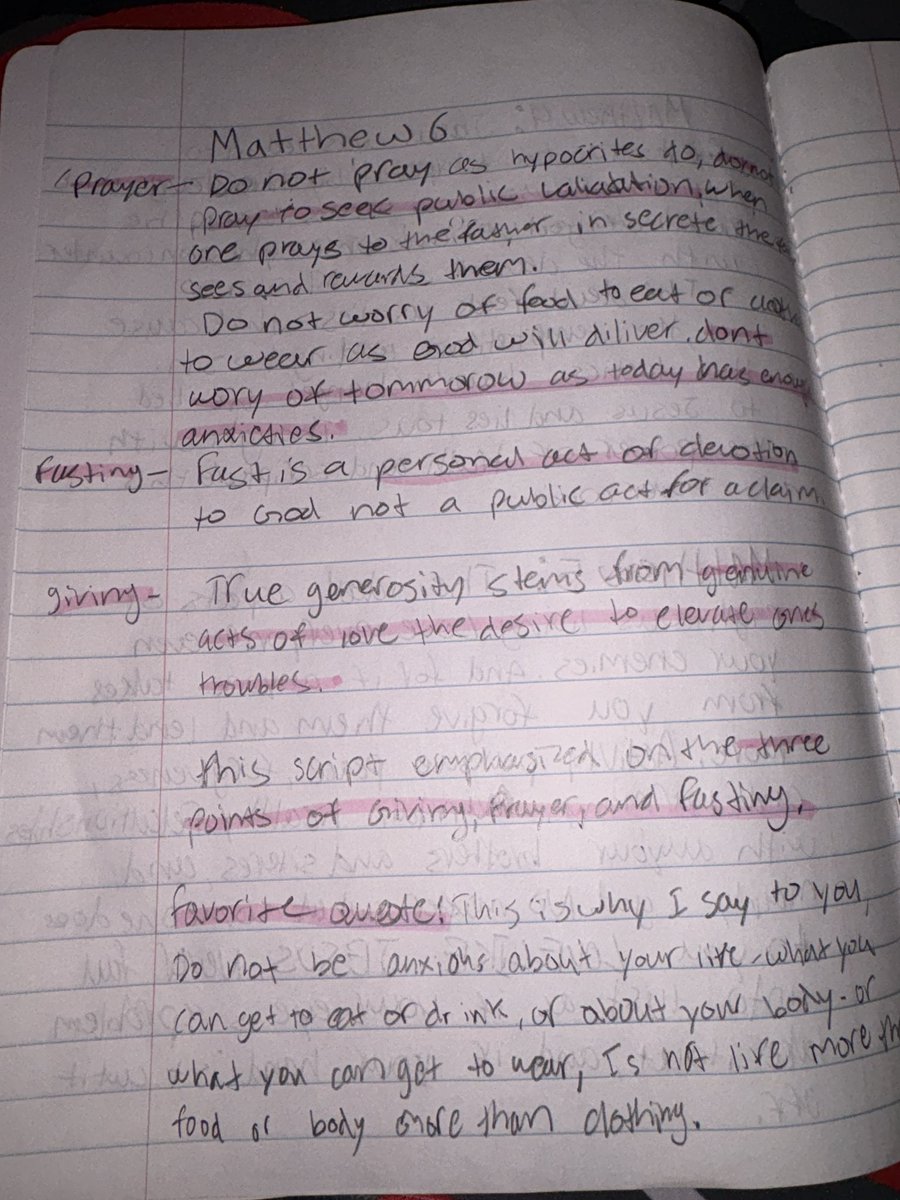 Matthew 6
Prayer - Do not pray as hypocrites do, do not
pray to seek public validation, when
one prays to the father in secrete the
sees and rewards them.
Do not worry of food to eat or
to wear as God will diliver. dont
wory of tommorow as today has enow
anxieties.
Fasting - Fast is a personal act of devotion
to God not a public act for aclaim.
giving - True generosity stems from genuine
acts of love the desire to elevate ones
troubles.
this script emphasized on the three
points of Giving, Prayer, and fasting.
favorite quote: This is why I say to you,
Do not be anxious about your life - what you
can get to eat or drink, or about your body - or
what you can get to wear, Is not life more th
food or body more than clothing.